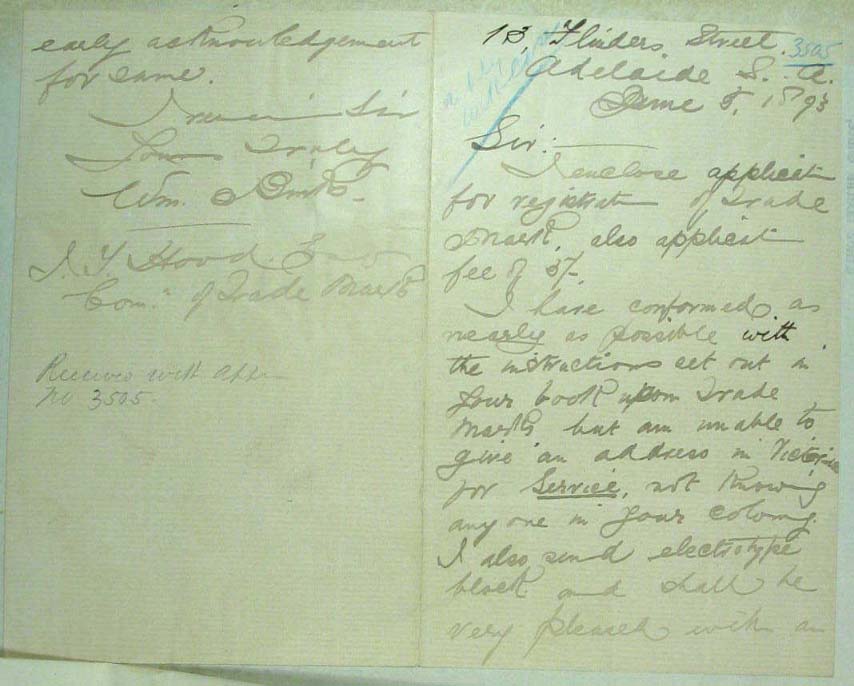 13, Flinders Street.
3505
Adelaide S. A.
June 5, 1893
Sir:
I enclose applicat
for registrat of Trade
Mark, also applicat
fee of 5/-
I have conformed as
nearly as possible with
the instructions set out in
your book upon Trade
Marks but am unable to
give an address in Victoria
for Service, not knowing
any one in your colony.
I also send electrotype
block and shall be
very pleased with an
early acknowledgement
for same.
I remain Sir
Yours Truly
Wm.
Com.r of Trade Marks
Received with App
No 3505